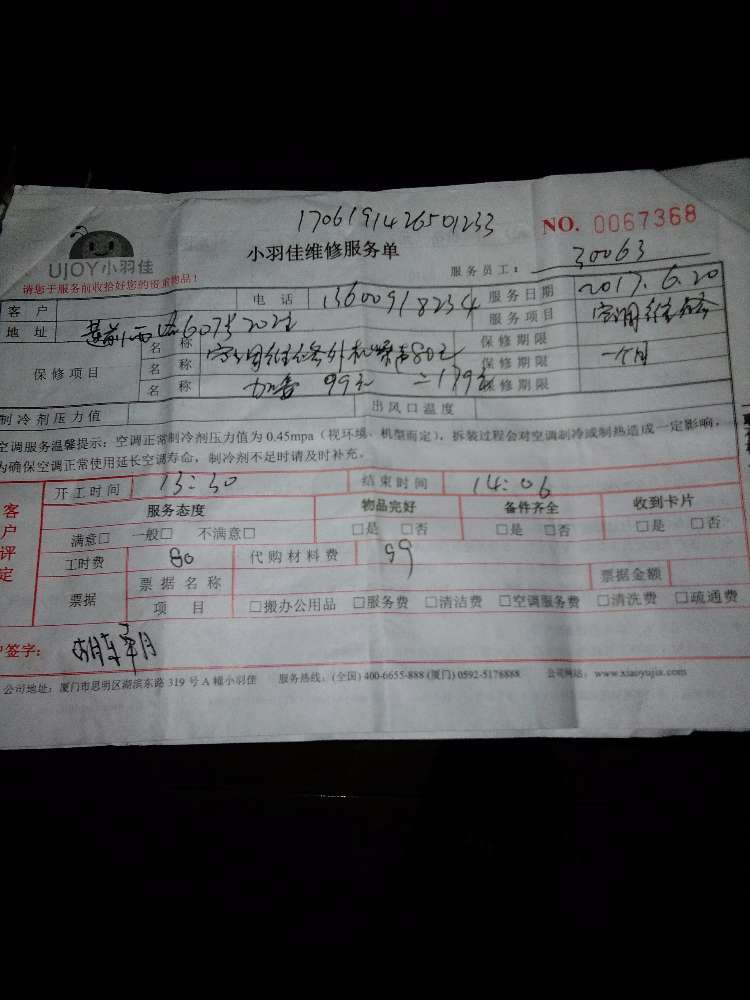 17061914265012​33
NO. 0067368
UJOY小羽佳
小羽佳维修服务单
服务员工: 30063
请您于服务前收拾好您的贵重物品!
客 户 电 话 13600918234 服务日期 2017.6.20
地 址 607号202 服务项目 空调维修
保修项目 名 称 空调维修外机噪声80元 保修期限
名 称 保修期限 一个月
名 称 加 99元 =179元 保修期限
制冷剂压力值 出风口温度
空调服务温馨提示:空调正常制冷剂压力值为 0.45mpa(视环境、机型而定),拆装过程会对空调制冷或制热造成一定影响,
为确保空调正常使用延长空调寿命,制冷剂不足时请及时补充。
客户评定
开工时间 13:30 结束时间 14:06
服务态度 物品完好 备件齐全 收到卡片
满意□ 一般□ 不满意□ □是 □否 □是 □否 □是 □否
工时费 80 代购材料费 99
票据 票据名称 票据金额
项 目 □搬办公用品 □服务费 □清洁费 □空调服务费 □清洗费 □疏通费
户签字:
公司地址:厦门市思明区湖滨东路 319 号 A 幢小羽佳 服务热线:(全国) 400-6655-888 (厦门) 0592-5176888 公司网站:www.xiaoyujia.com